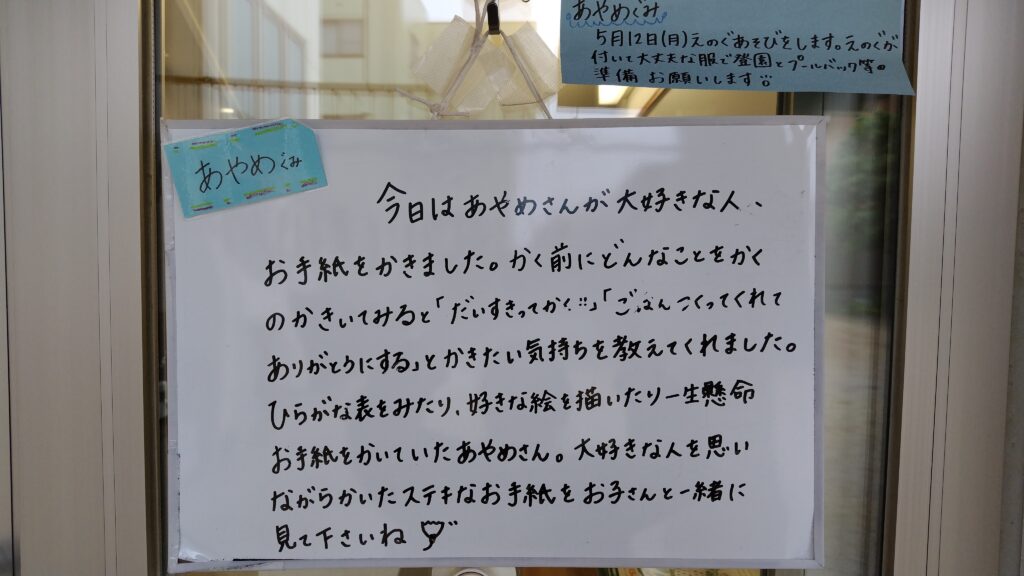 あやめぐみ
5月12日(月)えのぐあそびをします。えのぐが
付いて大丈夫な服で登園とプールバック等の
準備お願いします
あやめぐみ
今日はあやめさんが大好きな人、
お手紙をかきました。かく前にどんなことをかく
のかきいてみると「だいすきってかく!!」「ごはんつくってくれて
ありがとうにする」とかきたい気持ちを教えてくれました。
ひらがな表をみたり、好きな絵を描いたり一生懸命
お手紙をかいていたあやめさん。大好きな人を思い
ながらかいたステキなお手紙をお子さんと一緒に
見て下さいね